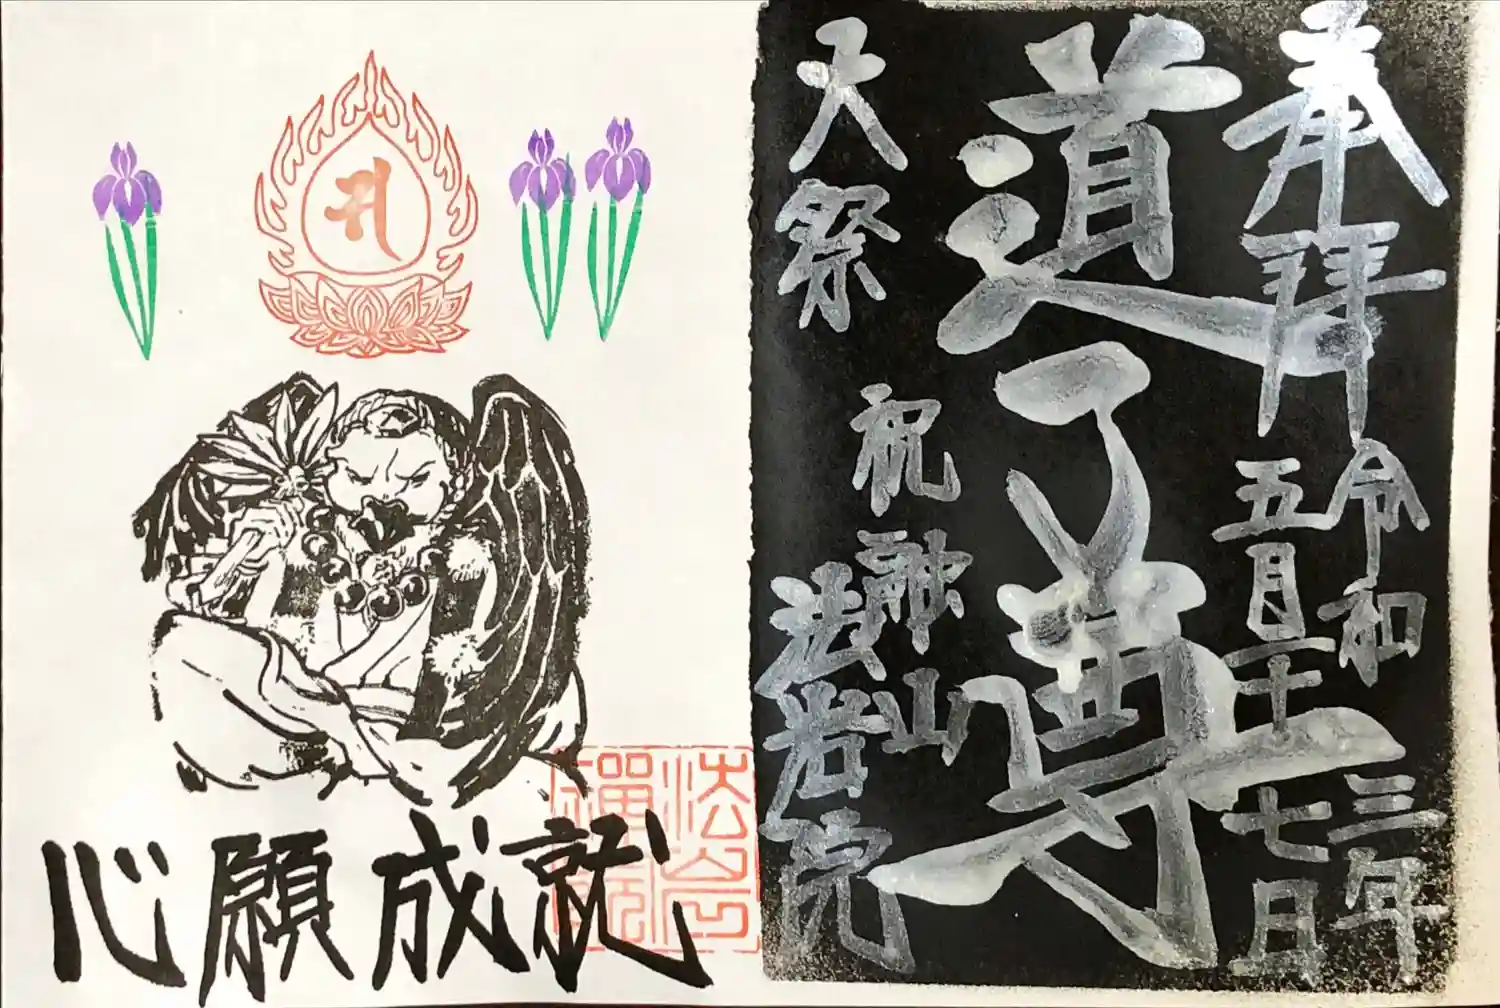 奉拝
令和三年
五月二十七日
道了尊
大祭
祝融山
法岩院
心願成就